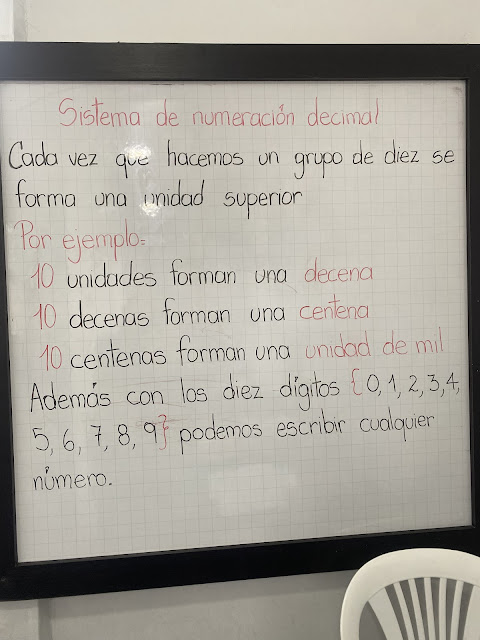 Sistema de numeración decimal
Cada vez que hacemos un grupo de diez se
forma una unidad superior
Por ejemplo:
10 unidades forman una decena
10 decenas forman una centena
10 centenas forman una unidad de mil
Además con los diez dígitos {0, 1, 2, 3, 4,
5, 6, 7, 8, 9} podemos escribir cualquier
número.